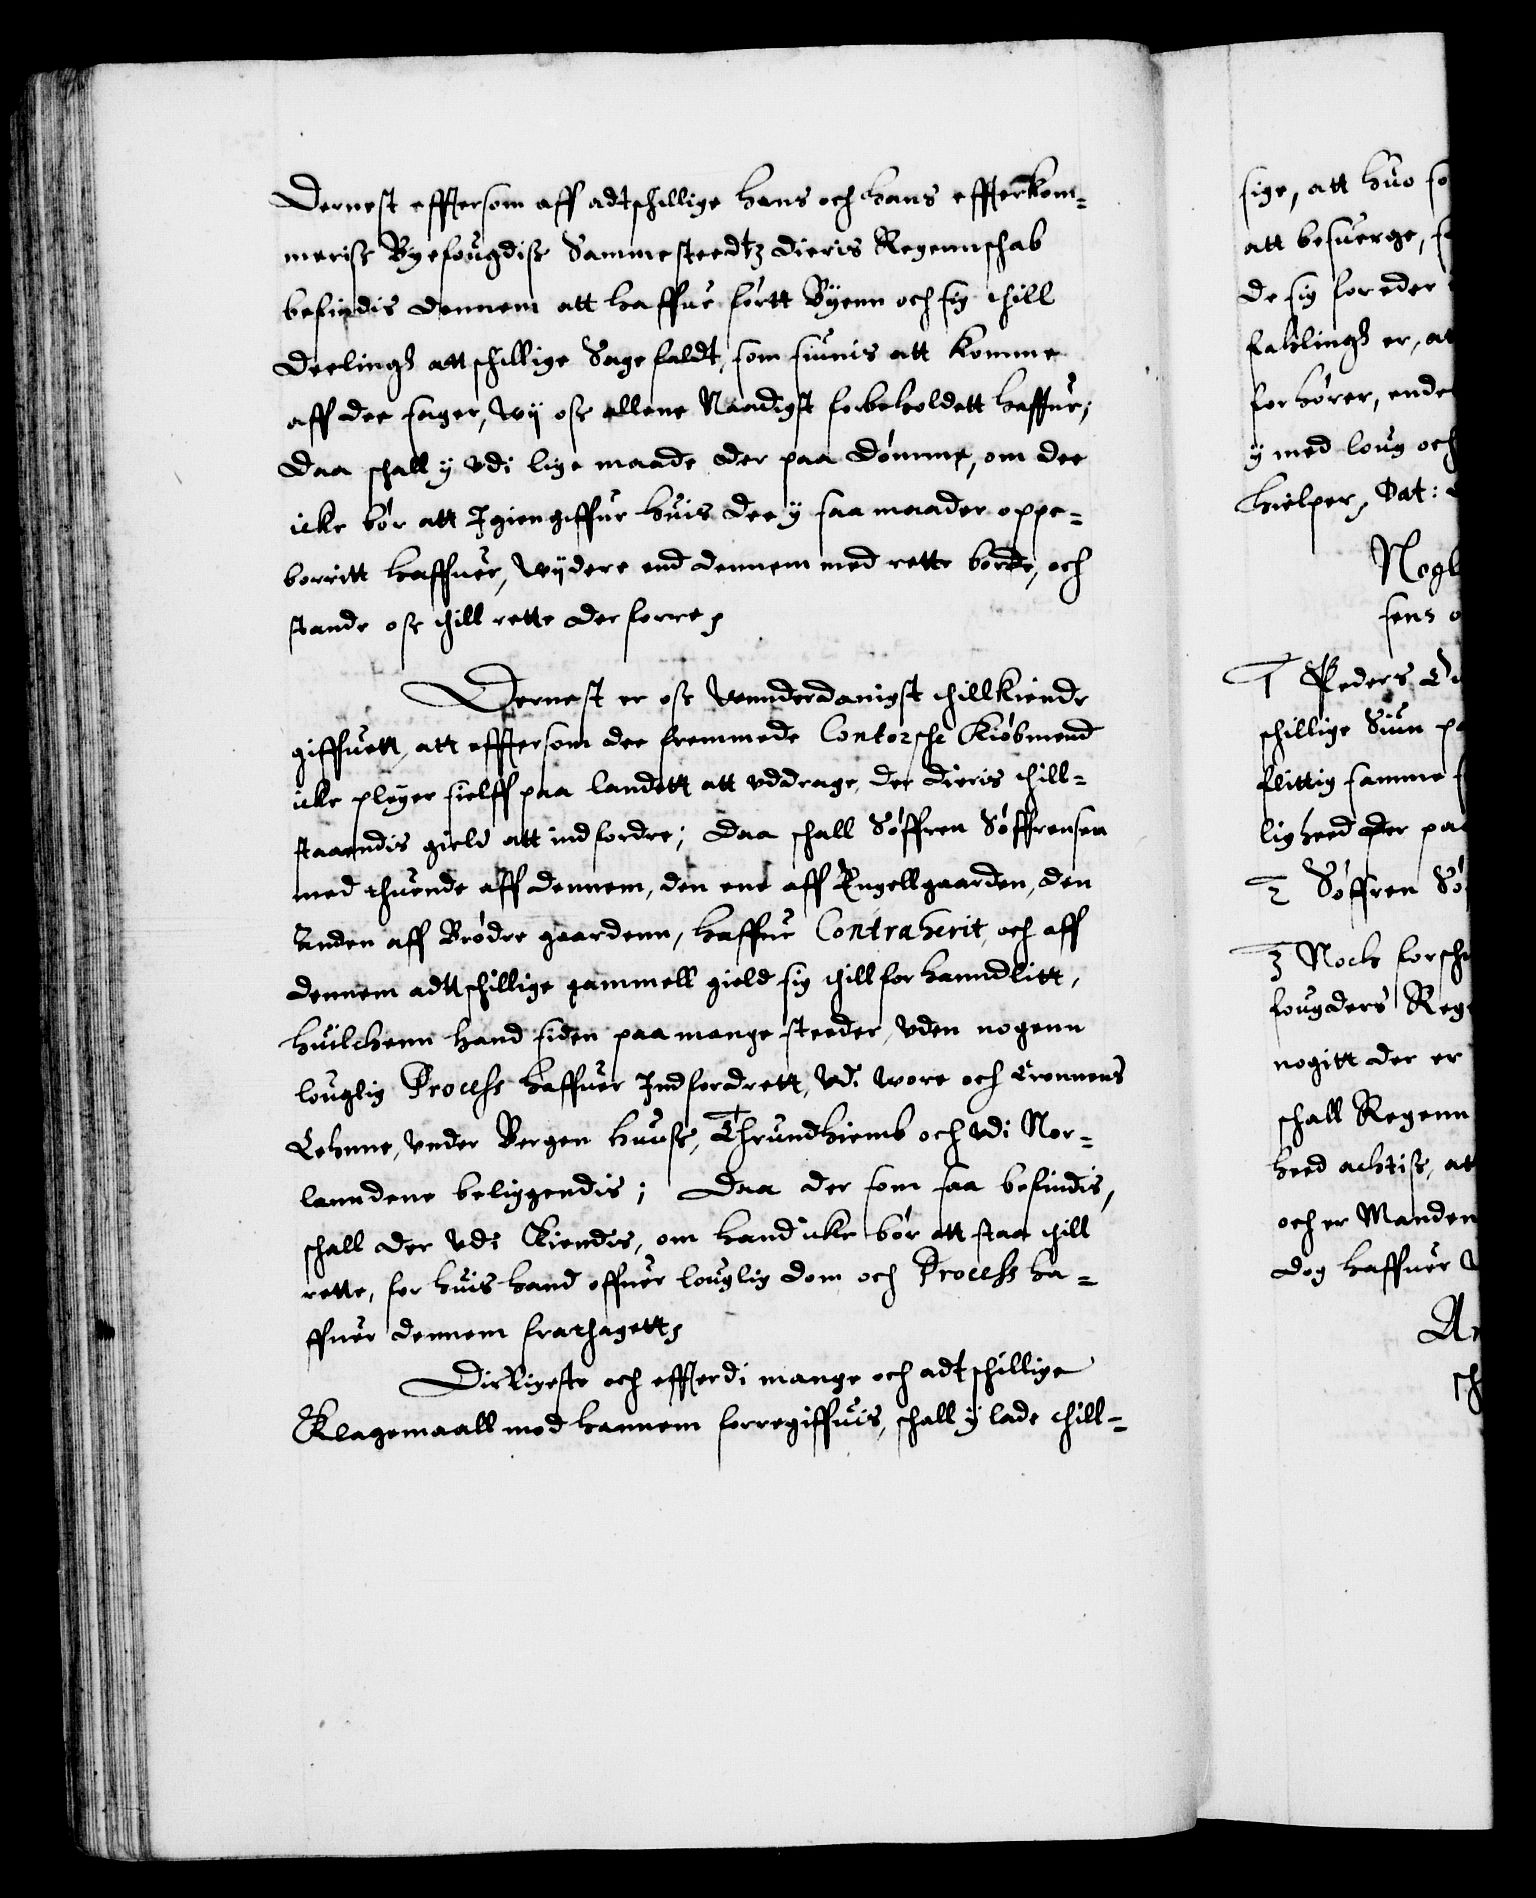 Dernest efftersom aff adtschillige hans och hans effterkom-
meris Byefougdis Sammesteedtz dieris Regennschab
befindis dennem att haffue førtt Byenn och sig thill
deelingh attschillige Sagefaldt, som siunis att komme
aff dee sager, wij oss allene Naadigst forbeholdett haffuer,
daa schall y vdi lige maade der paa dømme, om dee
icke bør att Igiengiffue huis dee y saa maader oppe-
borritt haffuer, wijdere end dennem med rette borde, och
stande oss thill rette der forre,
Dernest er oss wnnderdanigst thillkiende
giffuett, att efftersom dee fremmede Contorsche Kiøbmend
icke pleyer sielff paa landett att vddrage, der dieris thill-
staaendis gield att indfordre; daa schall Søffren Søffrensen
med thuende aff dennem, den ene aff Engellgaarden, den
Anden aff Brødre gaardenn, haffue Contraherit, och aff
dennem adttschillige gammell gield sig thill forhanndlitt,
huilchenn hand siden paa mange steeder, vden nogenn
louglig Process haffuer Indfordrett, vdi wore och Cronnens
Lehnne, vnder Bergen huuss, Thrundhiemb och vdi Nor-
lanndene beliggendis; Daa der som saa befindis,
schall der vdi Kiendis, om hand icke bør att staa thill
rette, for huis hand offuer louglig dom och Process ha-
ffuer dennem frathagett,
Dissligeste och effterdi mange och adtschillige
Klagemaall mod hannem forregiffuis, schall y lade thill-
sige, att huo so
att besuerge, s
de sig for eder
faklingh er, at
forhører, ende
y med loug och
hielper, Dat:
Nogl
sens o
1 Peders
schillige Siun pa
flittig samme
ligheed der paa
2 Søffren Sø
3 Noch forsch
fougders Reg
nogitt der er
schall Regenn
heed achtiss, at
och er Manden
dog haffuer
A
sch